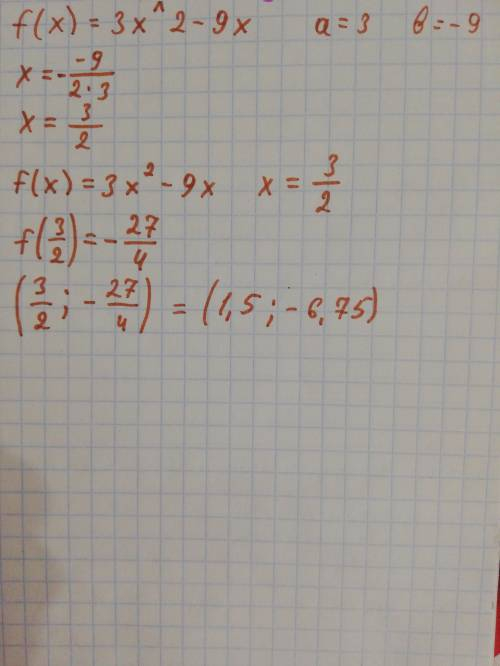 f(x) = 3x^2 - 9x    a = 3    b = -9
x = - -9/(2·3)
x = 3/2
f(x) = 3x² - 9x    x = 3/2
f(3/2) = - 27/4
(3/2 ; - 27/4) = (1,5 ; - 6,75)